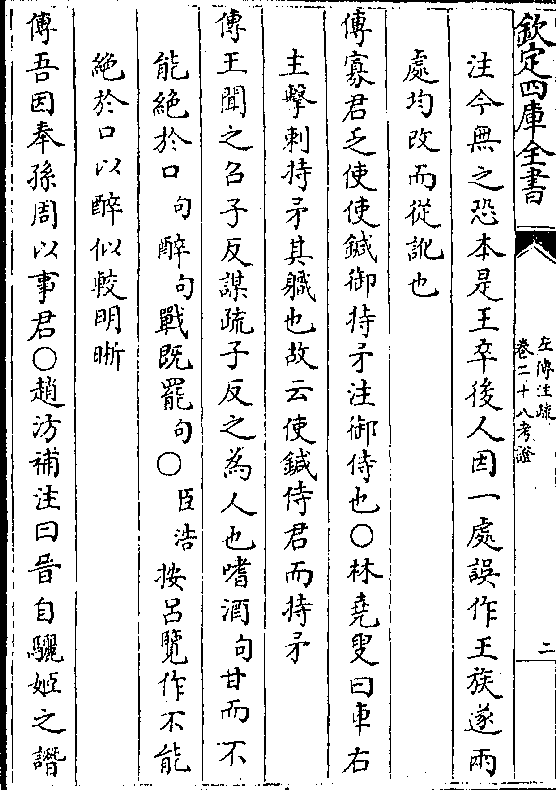 欽定四庫全書
左傳注疏
卷二十八考證
二
注今無之恐本是王卒後人因一處誤作王族遂兩
處均改而從訛也
傳寡君乏使使鍼御持矛注御侍也○林堯叟曰車右
主擊刺持矛其職也故云使鍼侍君而持矛
傳王聞之召子反謀疏子反之為人也嗜酒句甘而不
能絶於口句醉句戰既罷句○臣浩按呂覽作不能
絶於口以醉似較明晰
傳吾因奉孫周以事君○趙汸補注曰晉自驪姬之譖